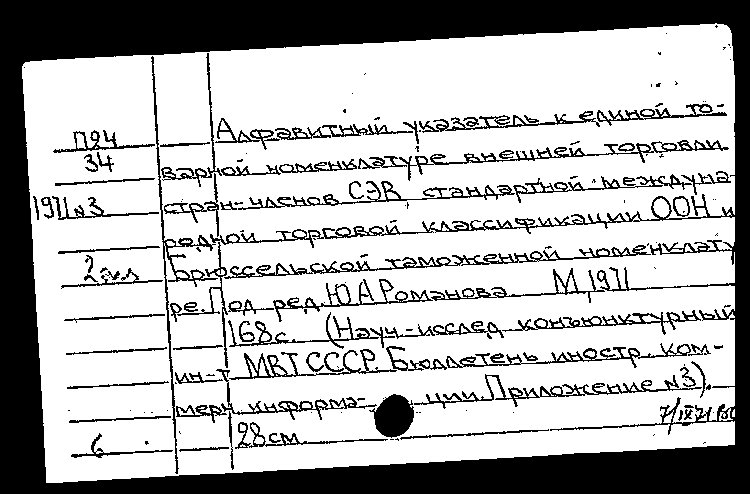 Алфавитный указатель к единой то-
П24
34
варной номенклатуре внешней торговли
1971 №3
стран-членов СЭВ, стандартной междуна-
родной торговой классификации ООН и
2 экз
Брюссельской таможенной номенклату
ре. Под ред. Ю.А Романова. М, 1971
168с. (Науч.-исслед конъюнктурный
ин-т МВТ СССР. Бюллетень иностр. ком-
мерч. информа- ции. Приложение №3).
28см
6